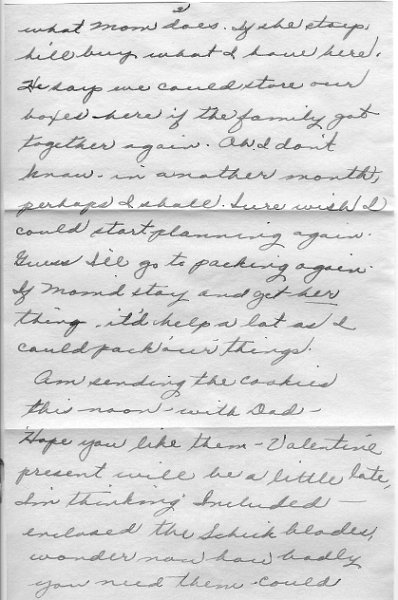 2
what Mom does. If she stays,
he'll buy what I have here.
He says we could store our
boxes here if the family got
together again. Oh, I don't
know - in another month,
perhaps I shall. Sure wish I
could start planning again.
Guess I'll go to packing again.
If Mom'd stay and get her
thing, it'd help a lot as I
could pack "our" things.
Am sending the cookies
this noon - with Dad -
Hope you like them - Valentine
present will be a little late,
I'm thinking. Included -
enclosed the Schick blades,
wonder now how badly
you need them - could